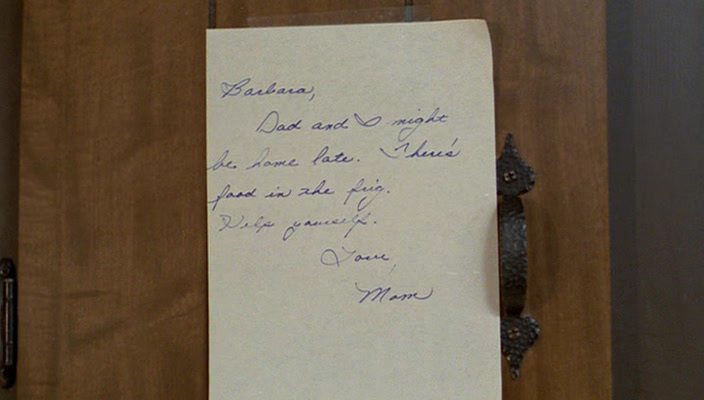 Barbara,
Dad and I might
be home late. There's
food in the frig.
Help yourself.
Love,
Mom